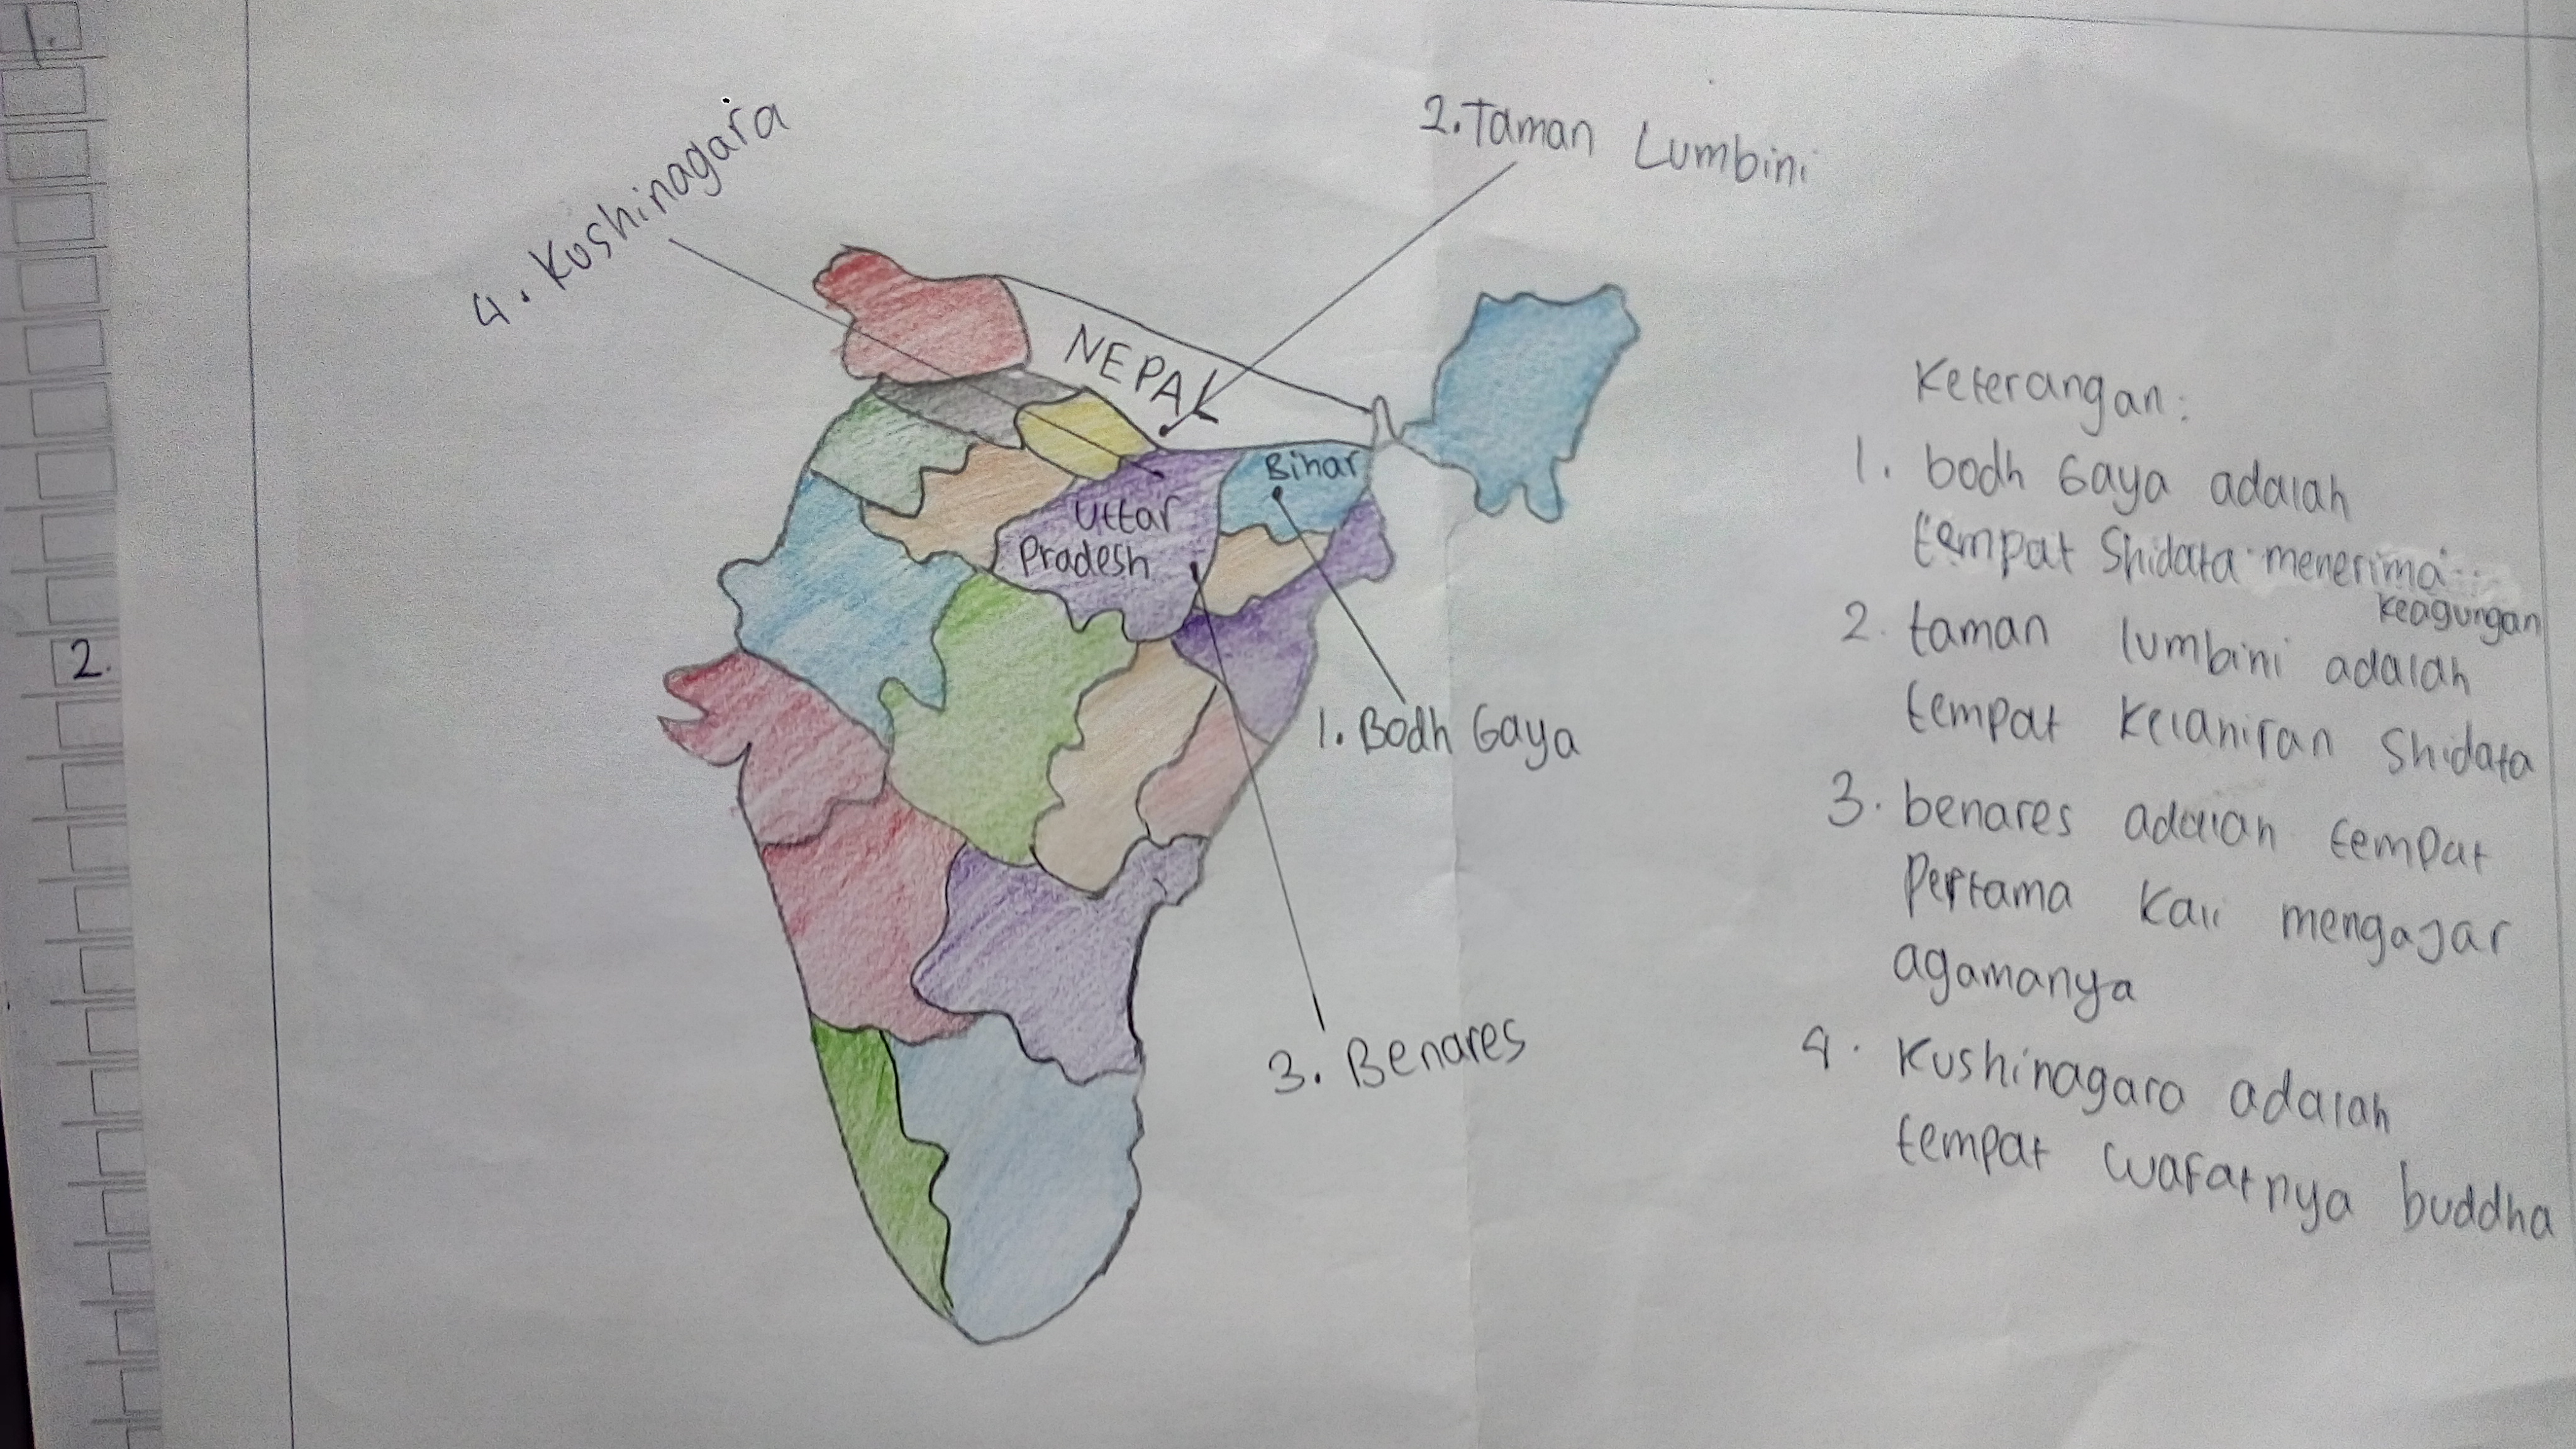 1.
2.
4. Kushinagara
2. Taman Lumbini
NEPAL
Bihar
Uttar
Pradesh
1. Bodh Gaya
3. Benares
Keterangan:
1. bodh Gaya adalah
tempat Shidata menerima
keagungan
2. taman lumbini adalah
tempat kelahiran Shidata
3. benares adalah tempat
Pertama kali mengajar
agamanya
4. Kushinagara adalah
tempat wafatnya buddha